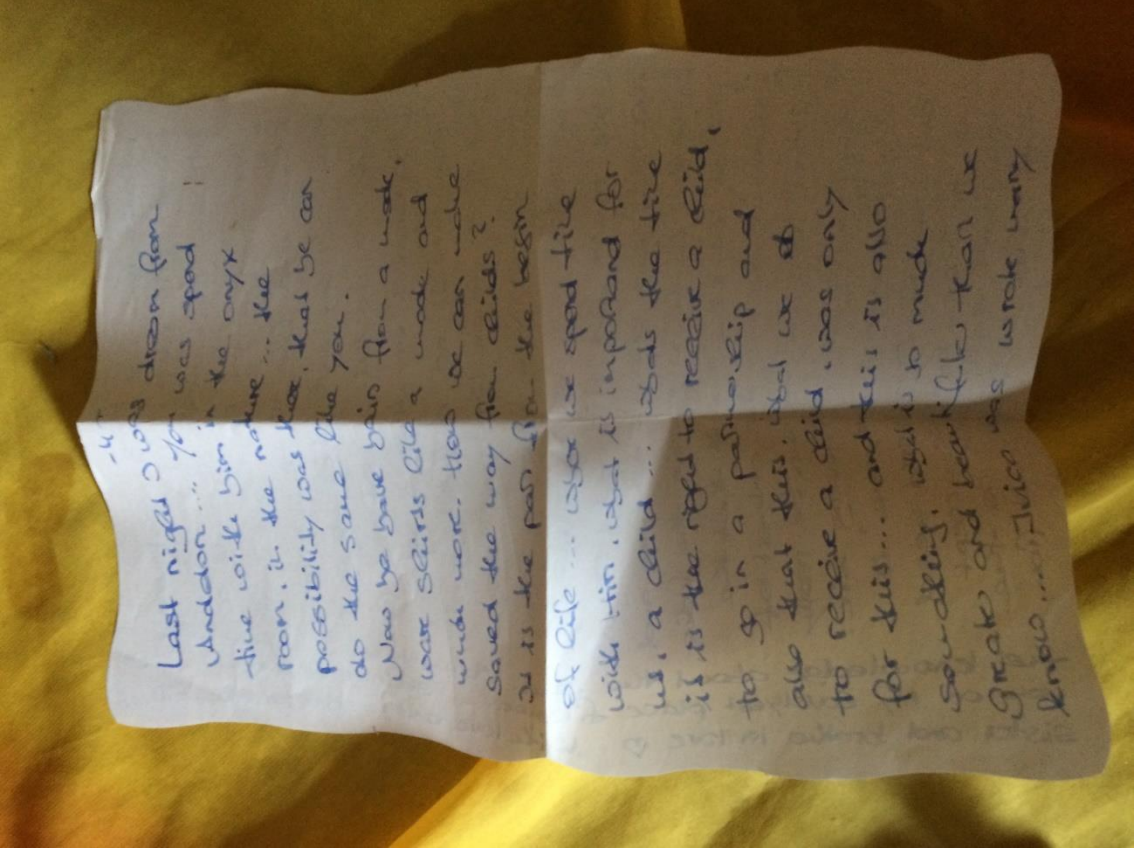 -4-
Last night I was dream from
Andalon.... You was spend !!
time with him in the onyx
room, in the nature... the
possibility was there, that he can
do the same like you.
Now he have bein from a mode,
work like a mode and
much more. How we can make
saved the way from childs?
It is the part from the begin
of life... were we spend time
with him, what is inporhand for
us, a child... whats the time
is is the right to receive a child,
to go in a partnership and
also that this. what we do
to receive a child, was only
for this... and this is also
something, what is so much
greate and beautifuler than we
know.... wrote many